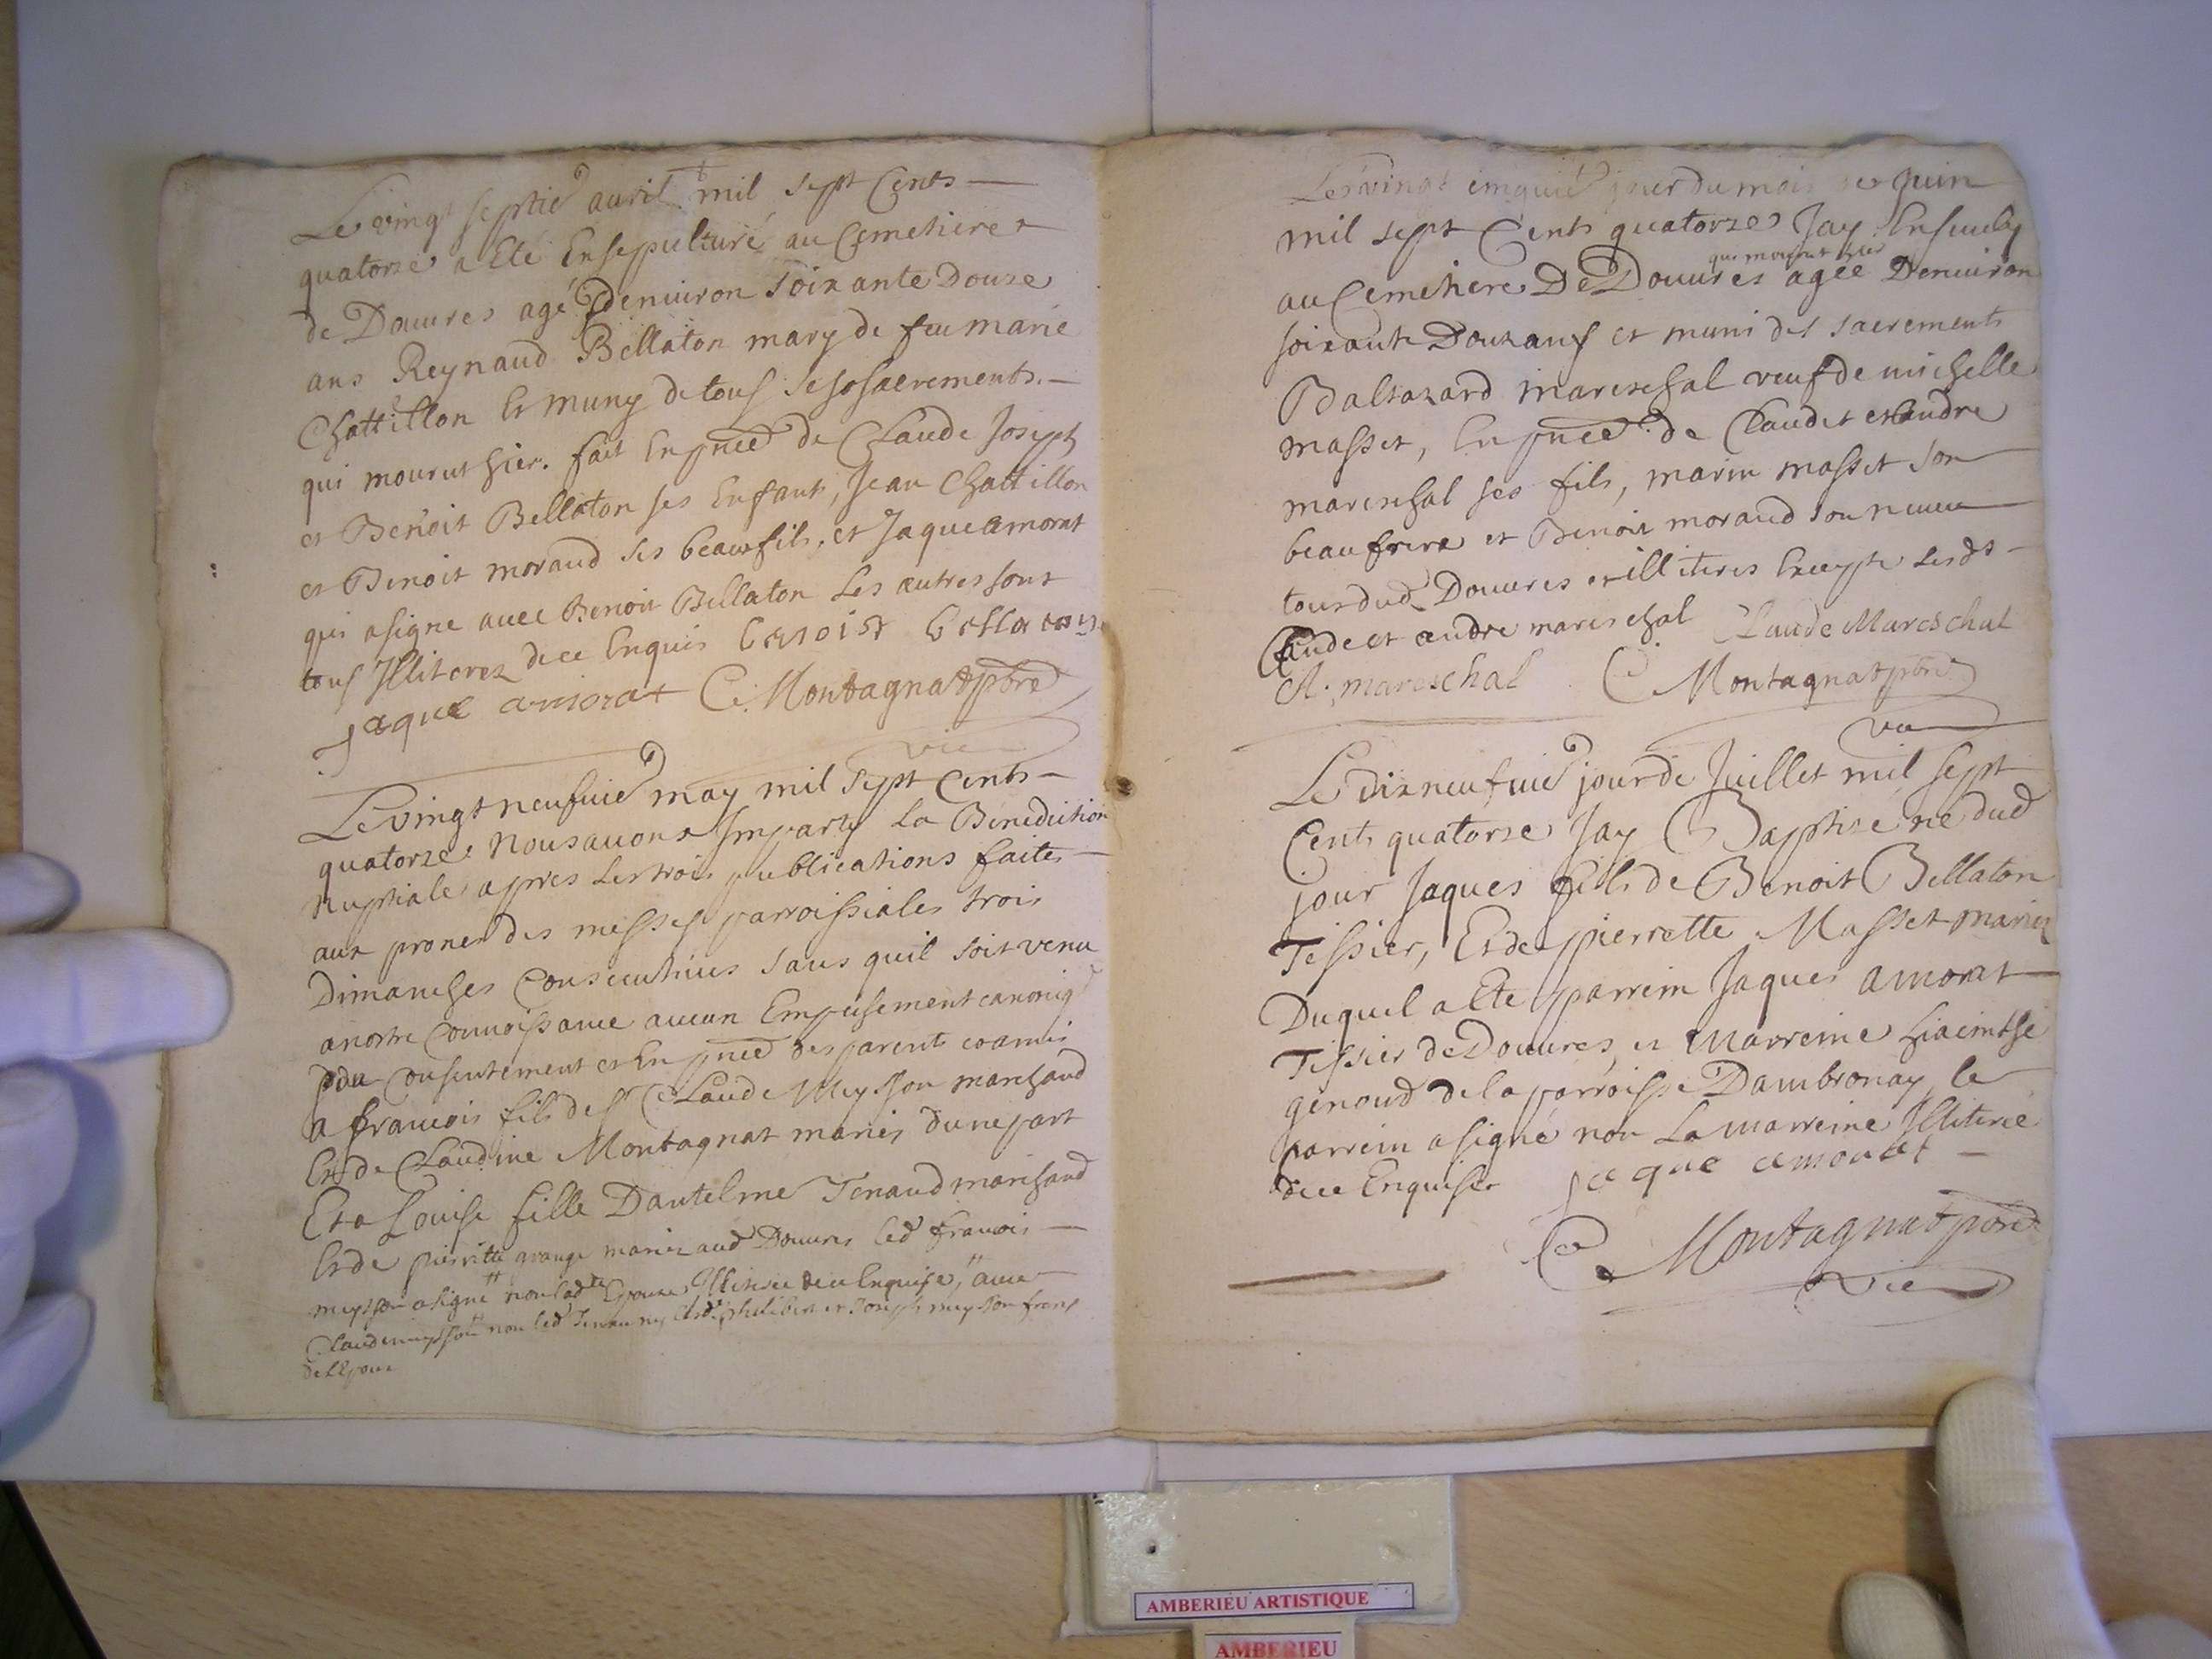 Le vingt septie avril mil sept Cents
quatorze a Eté Ensepulturé au Cemetiere
de Douvres agé Denviron soixante Douze
ans Reynaud Bellaton mary de feu marie
Chattillon Et muny de tous ses sacrements.
qui mourut hier. fait En pnce de Claude Joseph
et Benoit Bellaton ses Enfants, Jean Chattillon
et Benoit morand ses beaux fils, et Jaque amorat
qui a signe avec Benoit Bellaton Les autres sont
tous Illiterez de ce Enquis benoist bellaton
jaque amorat C. Montagnat pbre
vic
Le vingt neufvie may mil sept Cents
quatorze Nous avons Imparty La Benediction
Nuptiale apres Les trois publications faites
aux prones des messes parroissiales trois
Dimanches Consecutives sans quil soit venu
a notre Connoissance aucun Empeschement canoniq
du Consentement et En pnce des parents et amis
a francois fils de Sr Claude Meysson marchand
Et de Claudine Montagnat mariés dune part
Et a Louise fille Dantelme Tenand marchand
Et de pierrette grange mariez aud Douvres led francois
meysson a signé non lad Epouse Illiteree de ce Enquise, avec
Claude meysson non led Tenand philibert et Joseph meysson freres
de L Epoux
Le vingt cinquie jour du mois de Juin
mil sept Cents quatorze Jay Ensevely
qui mourut hier
au Cemetiere De Douvres agée Denviron
soixante Douz ans et muni des sacrements
Baltazard mareschal veuf de michelle
masset, En pnce de Claude et andre
mareschal ses fils, marin masset son
beaufrere et Benoit morand son neveu
tous dud Douvres et illiteres Excepte Lesdts
Claude et andre mareschal Claude Mareschal
A. mareschal C. Montagnat pbre
vic
Le dix neufvie jour de Juillet mil sept
Cents quatorze Jay Baptisé né dud
jour Jaques fils de Benoit Bellaton
Tissier, Et de pierrette Masset mariez
Duquel a Ete parrein Jaques amorat
Tissier de Douvres, et Marreine hiacinthe
genoud de la parroisse Dambronay, le
parrein a signé non La marreine Illiteree
de ce Enquise jaque amorat
C. Montagnat pbre
vic
AMBERIEU ARTISTIQUE
AMBERIEU